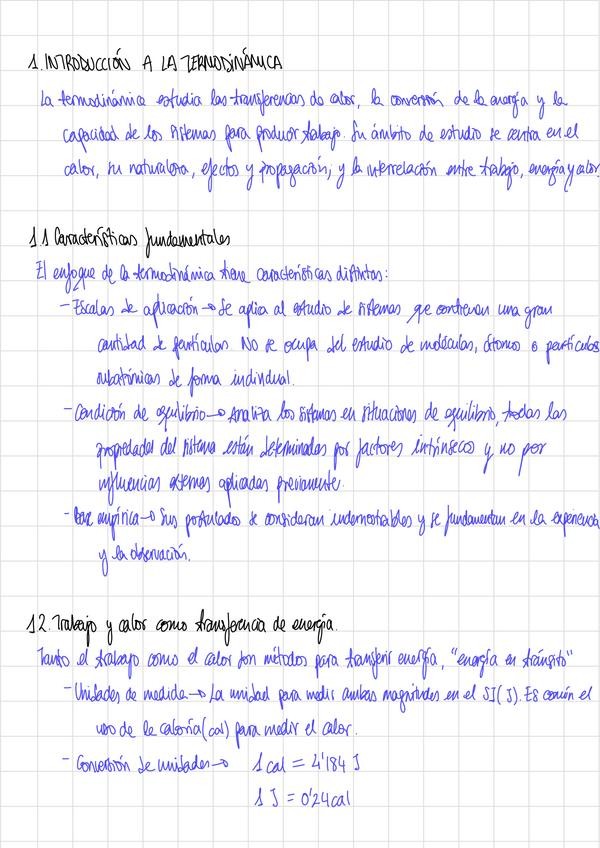 1. INTRODUCCIÓN A LA TERMODINÁMICA
La termodinámica estudia las transferencias de calor, la conversión de la energía y la
capacidad de los sistemas para producir trabajo. Su ámbito de estudio se centra en el
calor, su naturaleza, efectos y propagación, y la interrelación entre trabajo, energía y calor.
1.1 Características fundamentales
El enfoque de la termodinámica tiene características distintas:
- Escalas de aplicación → Se aplica al estudio de sistemas que contienen una gran
cantidad de partículas. No se ocupa del estudio de moléculas, átomos o partículas
subatómicas de forma individual.
- Condición de equilibrio → Analiza los sistemas en situaciones de equilibrio, todas las
propiedades del sistema están determinadas por factores intrínsecos y no por
influencias externas aplicadas previamente.
- Base empírica → Sus postulados se consideran indemostrables y se fundamentan en la experiencia
y la observación.
1.2. Trabajo y calor como transferencia de energía.
Tanto el trabajo como el calor son métodos para transferir energía, "energía en tránsito"
- Unidades de medida → La unidad para medir ambas magnitudes en el SI (J). Es común el
uso de la caloría (cal) para medir el calor.
- Conversión de unidades → 1 cal = 4'184 J
1 J = 0'24 cal